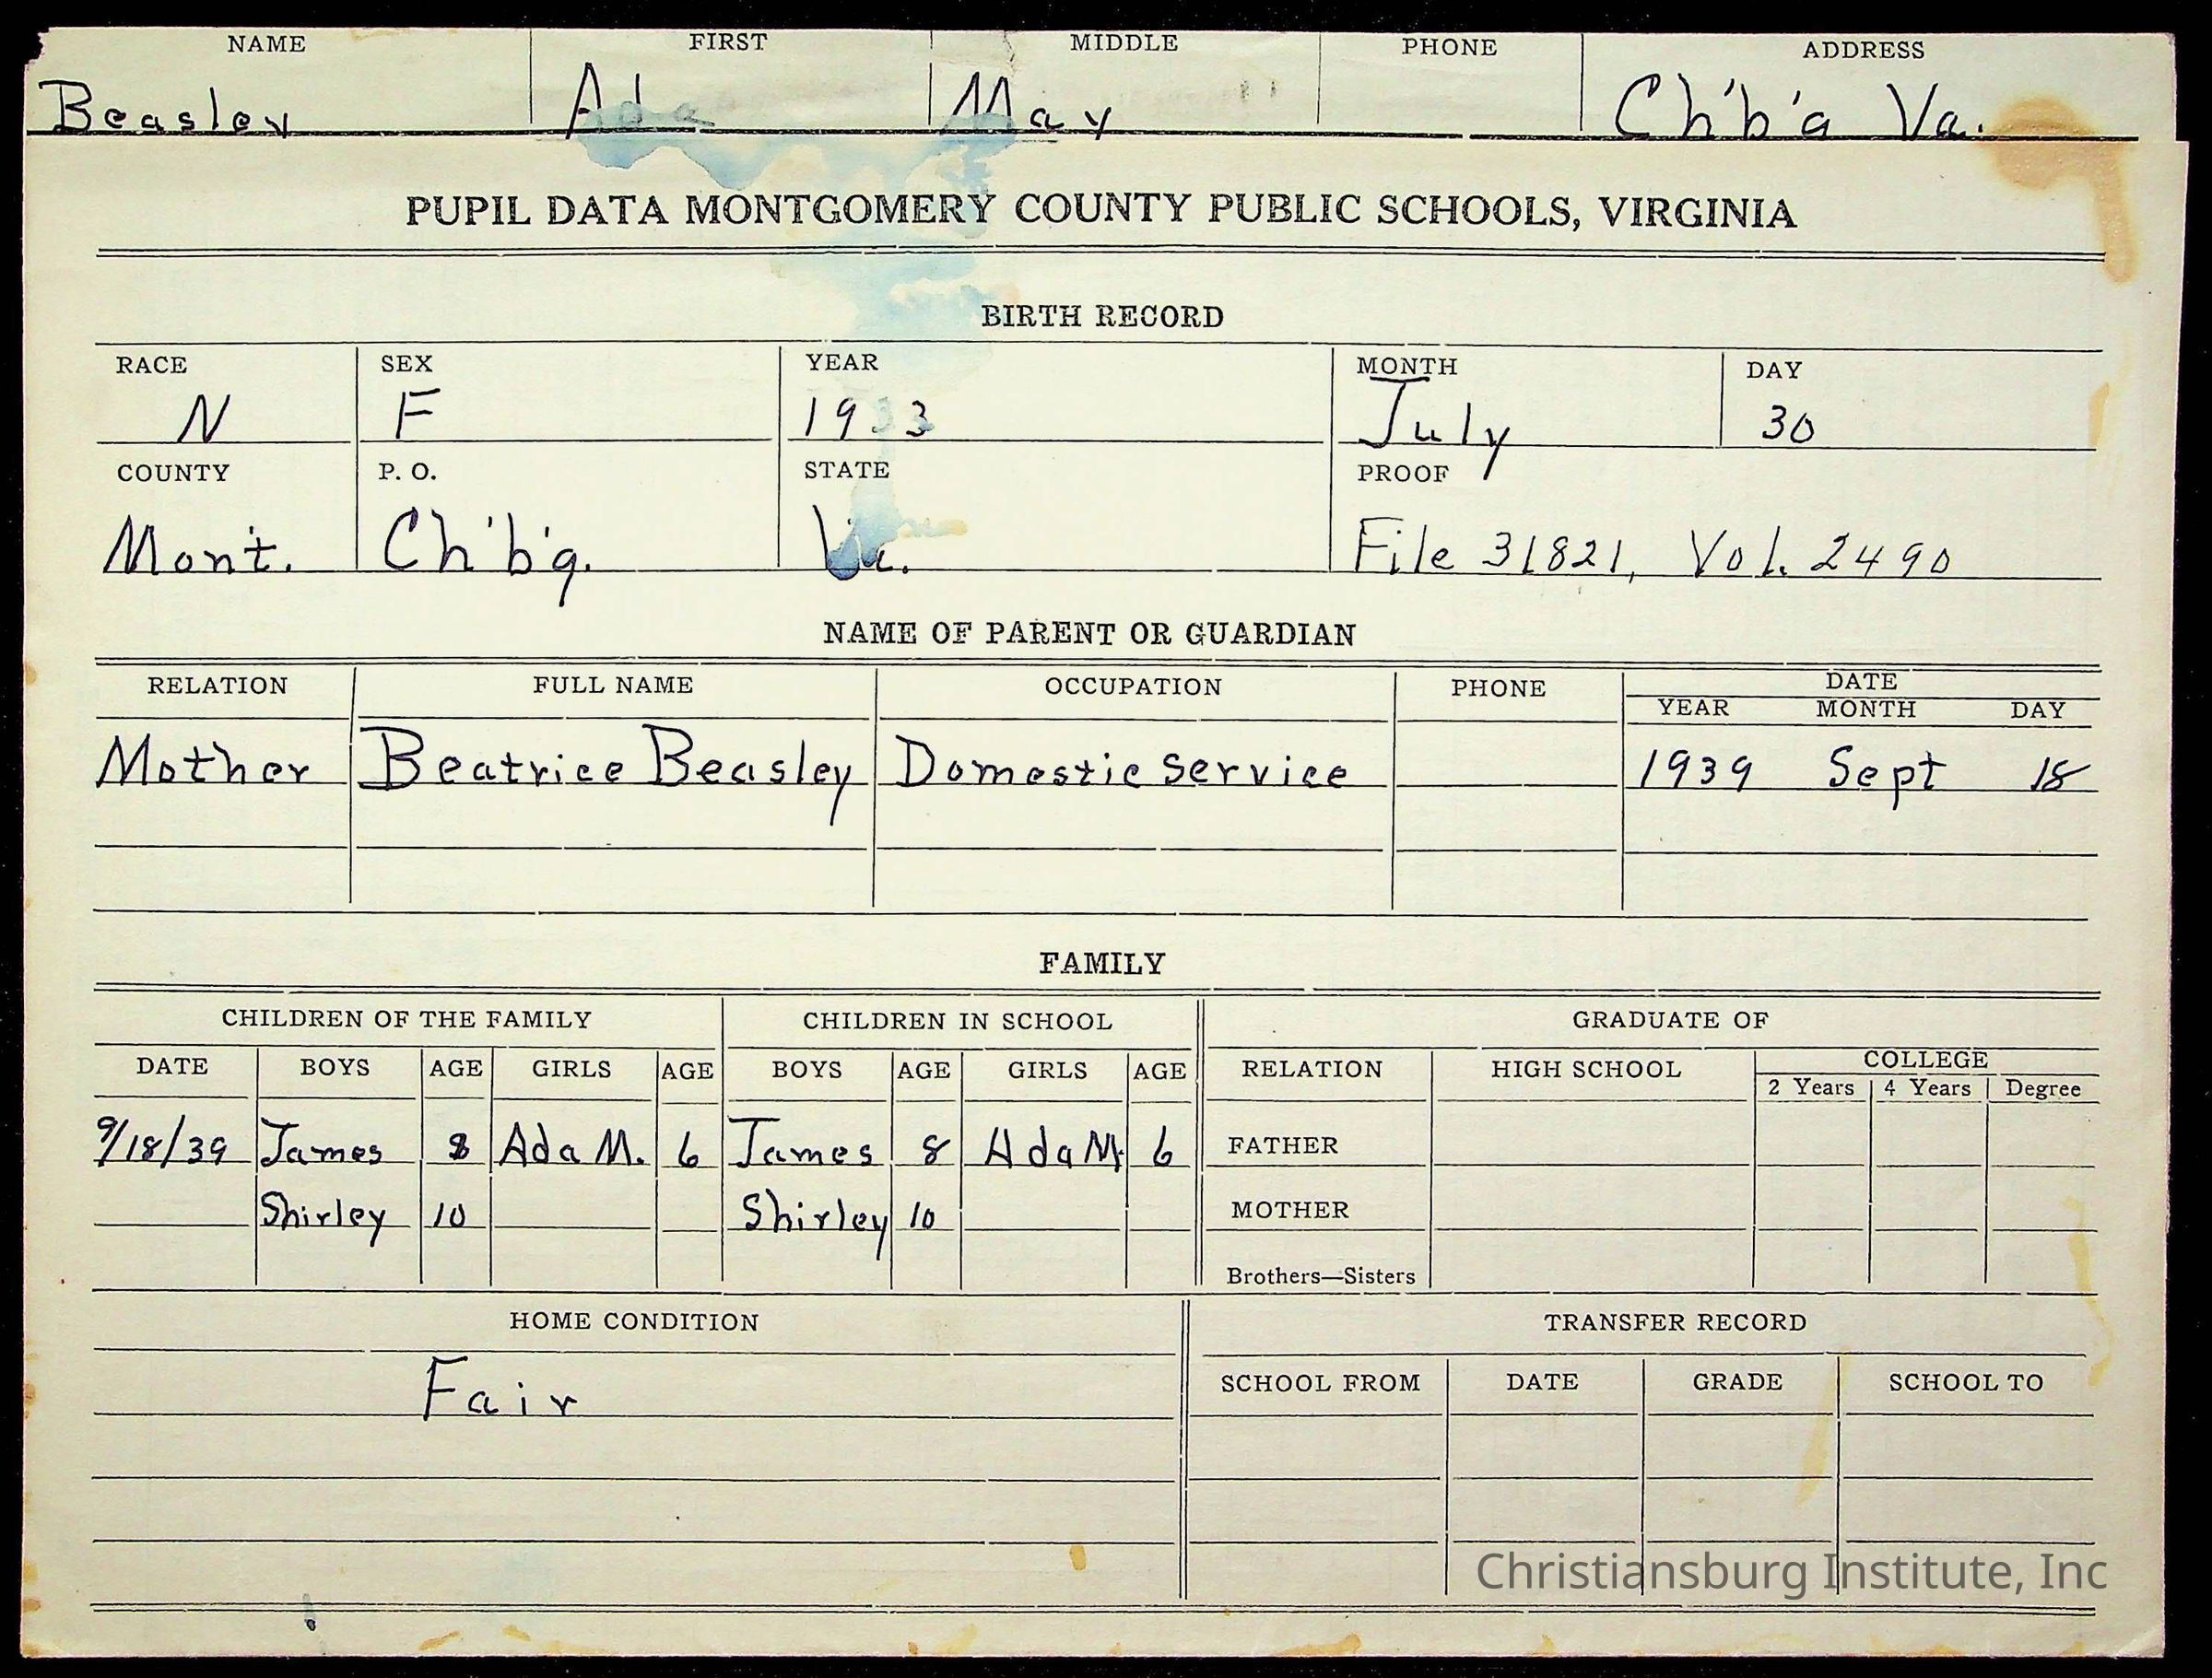 NAME FIRST MIDDLE PHONE ADDRESS
Beasley Ada May Ch'b'g Va.
PUPIL DATA MONTGOMERY COUNTY PUBLIC SCHOOLS, VIRGINIA
BIRTH RECORD
RACE SEX YEAR MONTH DAY
N F 1933 July 30
COUNTY P. O. STATE PROOF
Mont. Ch'b'g. Va. File 31821, Vol. 2490
NAME OF PARENT OR GUARDIAN
RELATION FULL NAME OCCUPATION PHONE DATE
YEAR MONTH DAY
Mother Beatrice Beasley Domestic service 1939 Sept 18
FAMILY
CHILDREN OF THE FAMILY CHILDREN IN SCHOOL GRADUATE OF
DATE BOYS AGE GIRLS AGE BOYS AGE GIRLS AGE RELATION HIGH SCHOOL COLLEGE
2 Years 4 Years Degree
9/18/39 James 8 Ada M. 6 James 8 Ada M. 6 FATHER
Shirley 10 Shirley 10 MOTHER
Brothers—Sisters
HOME CONDITION TRANSFER RECORD
Fair
SCHOOL FROM DATE GRADE SCHOOL TO
Christiansburg Institute, Inc